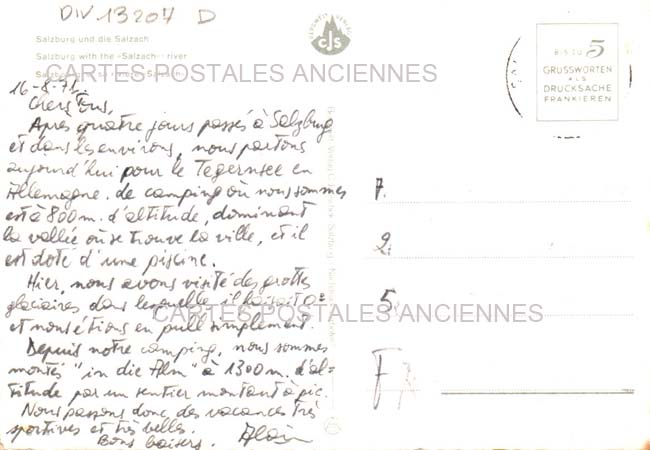 DIV 13207 D
Salzburg und die Salzach
Salzburg with the »Salzach« river
CARTES POSTALES ANCIENNES
16-8-71
Chers Tous,
Après quatre jours passés à Salzburg
et dans les environs, nous partons
aujourd'hui pour le Tegernsee en
Allemagne. Le camping où nous sommes
est à 800 m. d'altitude, dominant
la vallée où se trouve la ville, et il
est doté d'une piscine.
Hier, nous avons visité des grottes
glaciaires dans lesquelles il faisait 0°
et nous étions en pull simplement.
Depuis notre camping, nous sommes
montés "in die Alm" à 1300 m. d'al-
titude par un sentier montant à pic.
Nous passons donc des vacances très
sportives et très belles.
Bons baisers. Alain
CJS
BIS ZU 5
GRUSSWORTEN
ALS
DRUCKSACHE
FRANKIEREN
7.
2.
5.
F
CARTES POSTALES ANCIENNES